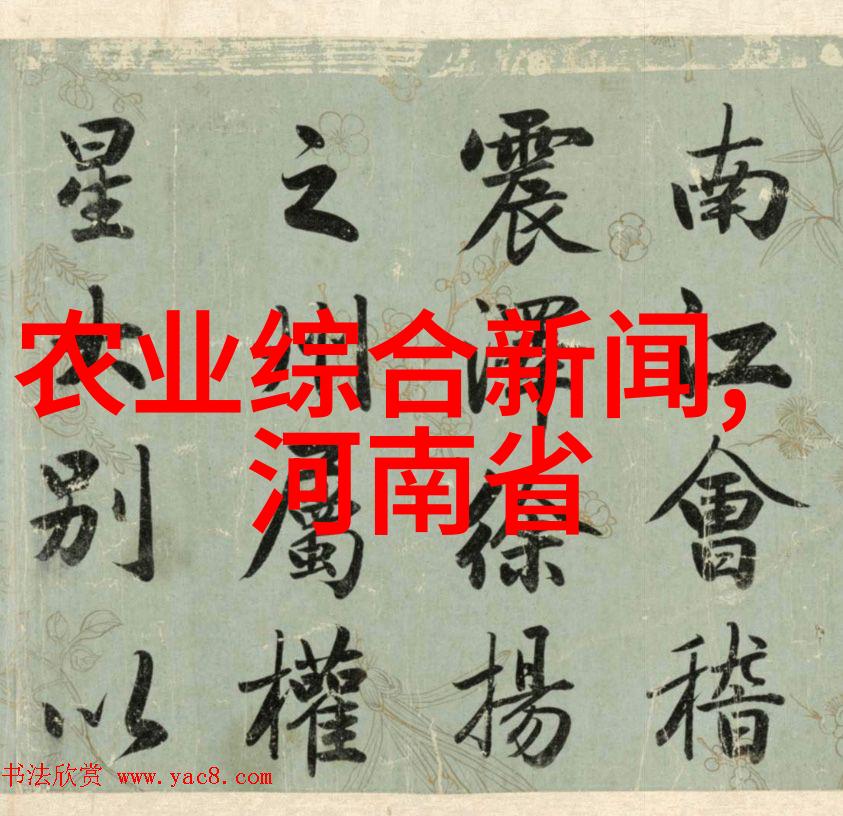 农业综合新闻,
河南省
南江會稽
震澤徐揚
之州屬權
星土別以
书法欣赏 www.yac8.com